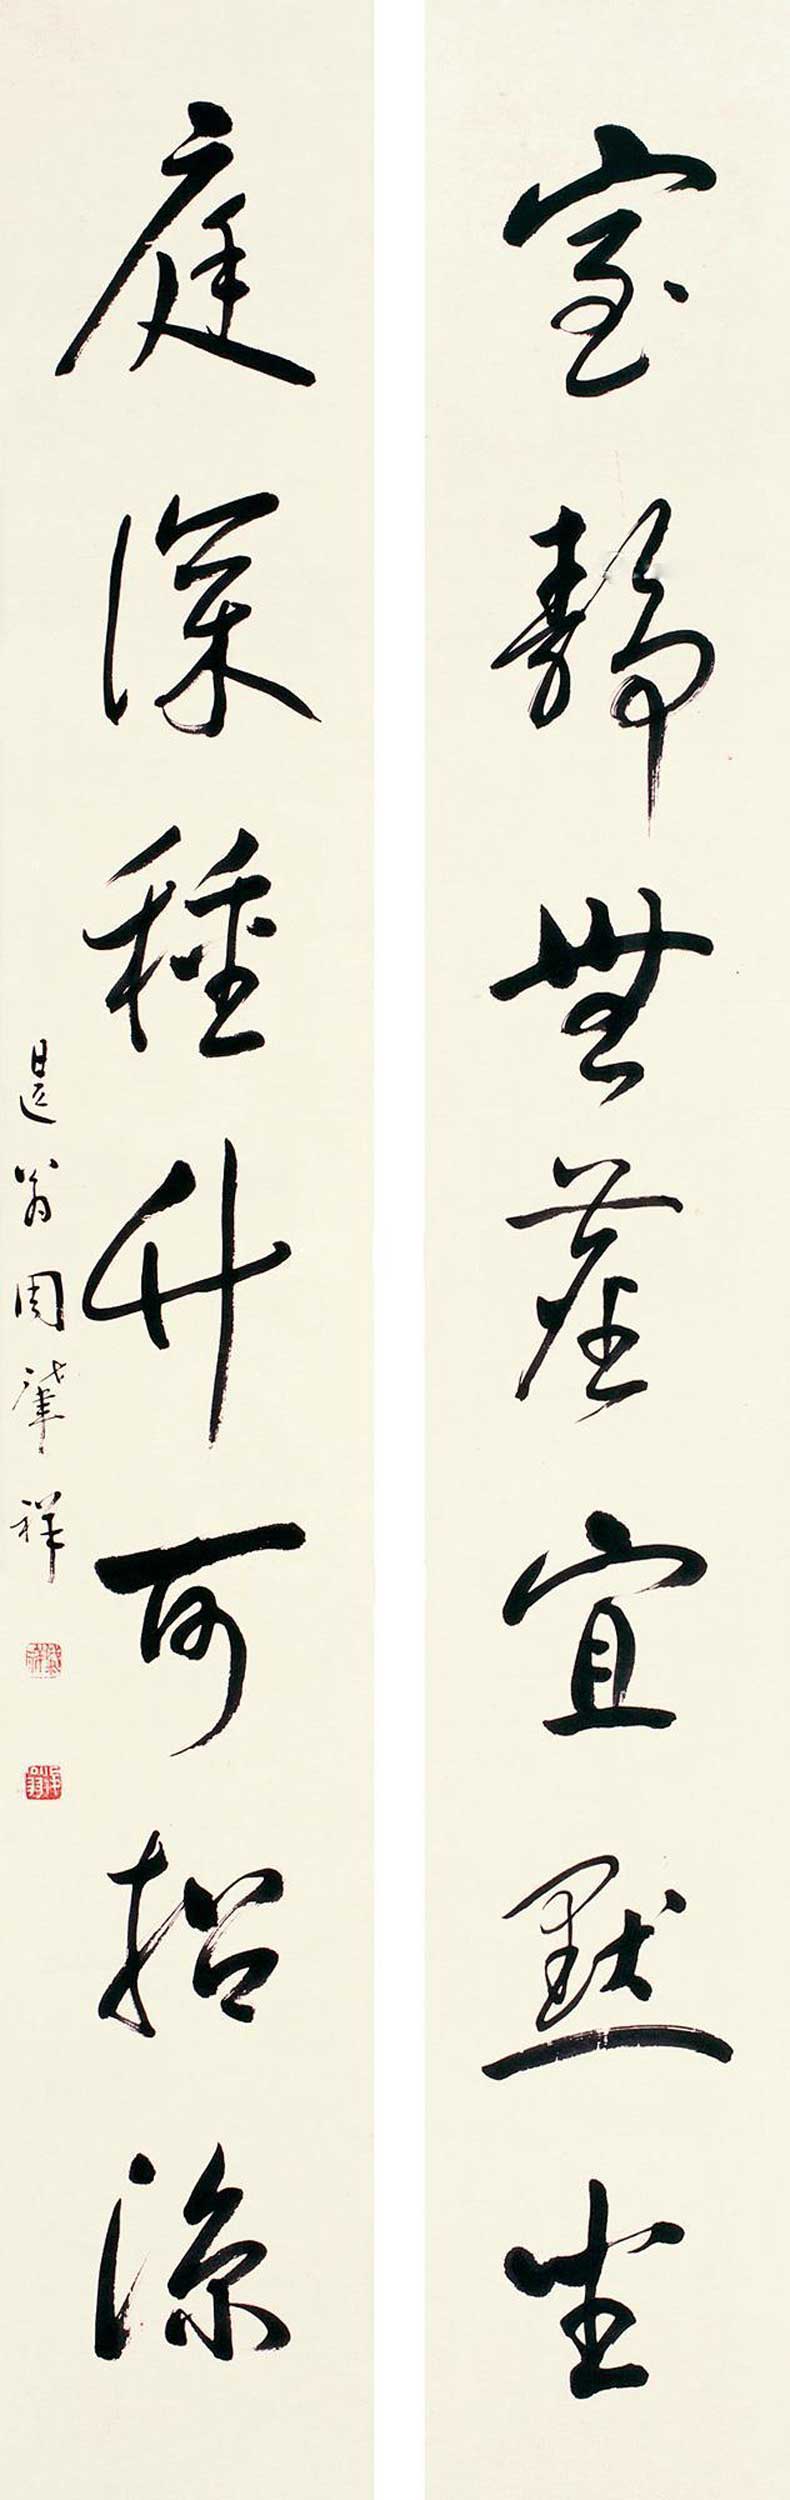 室靜無塵宜默坐
庭深種竹可招涼
退翁周肇祥